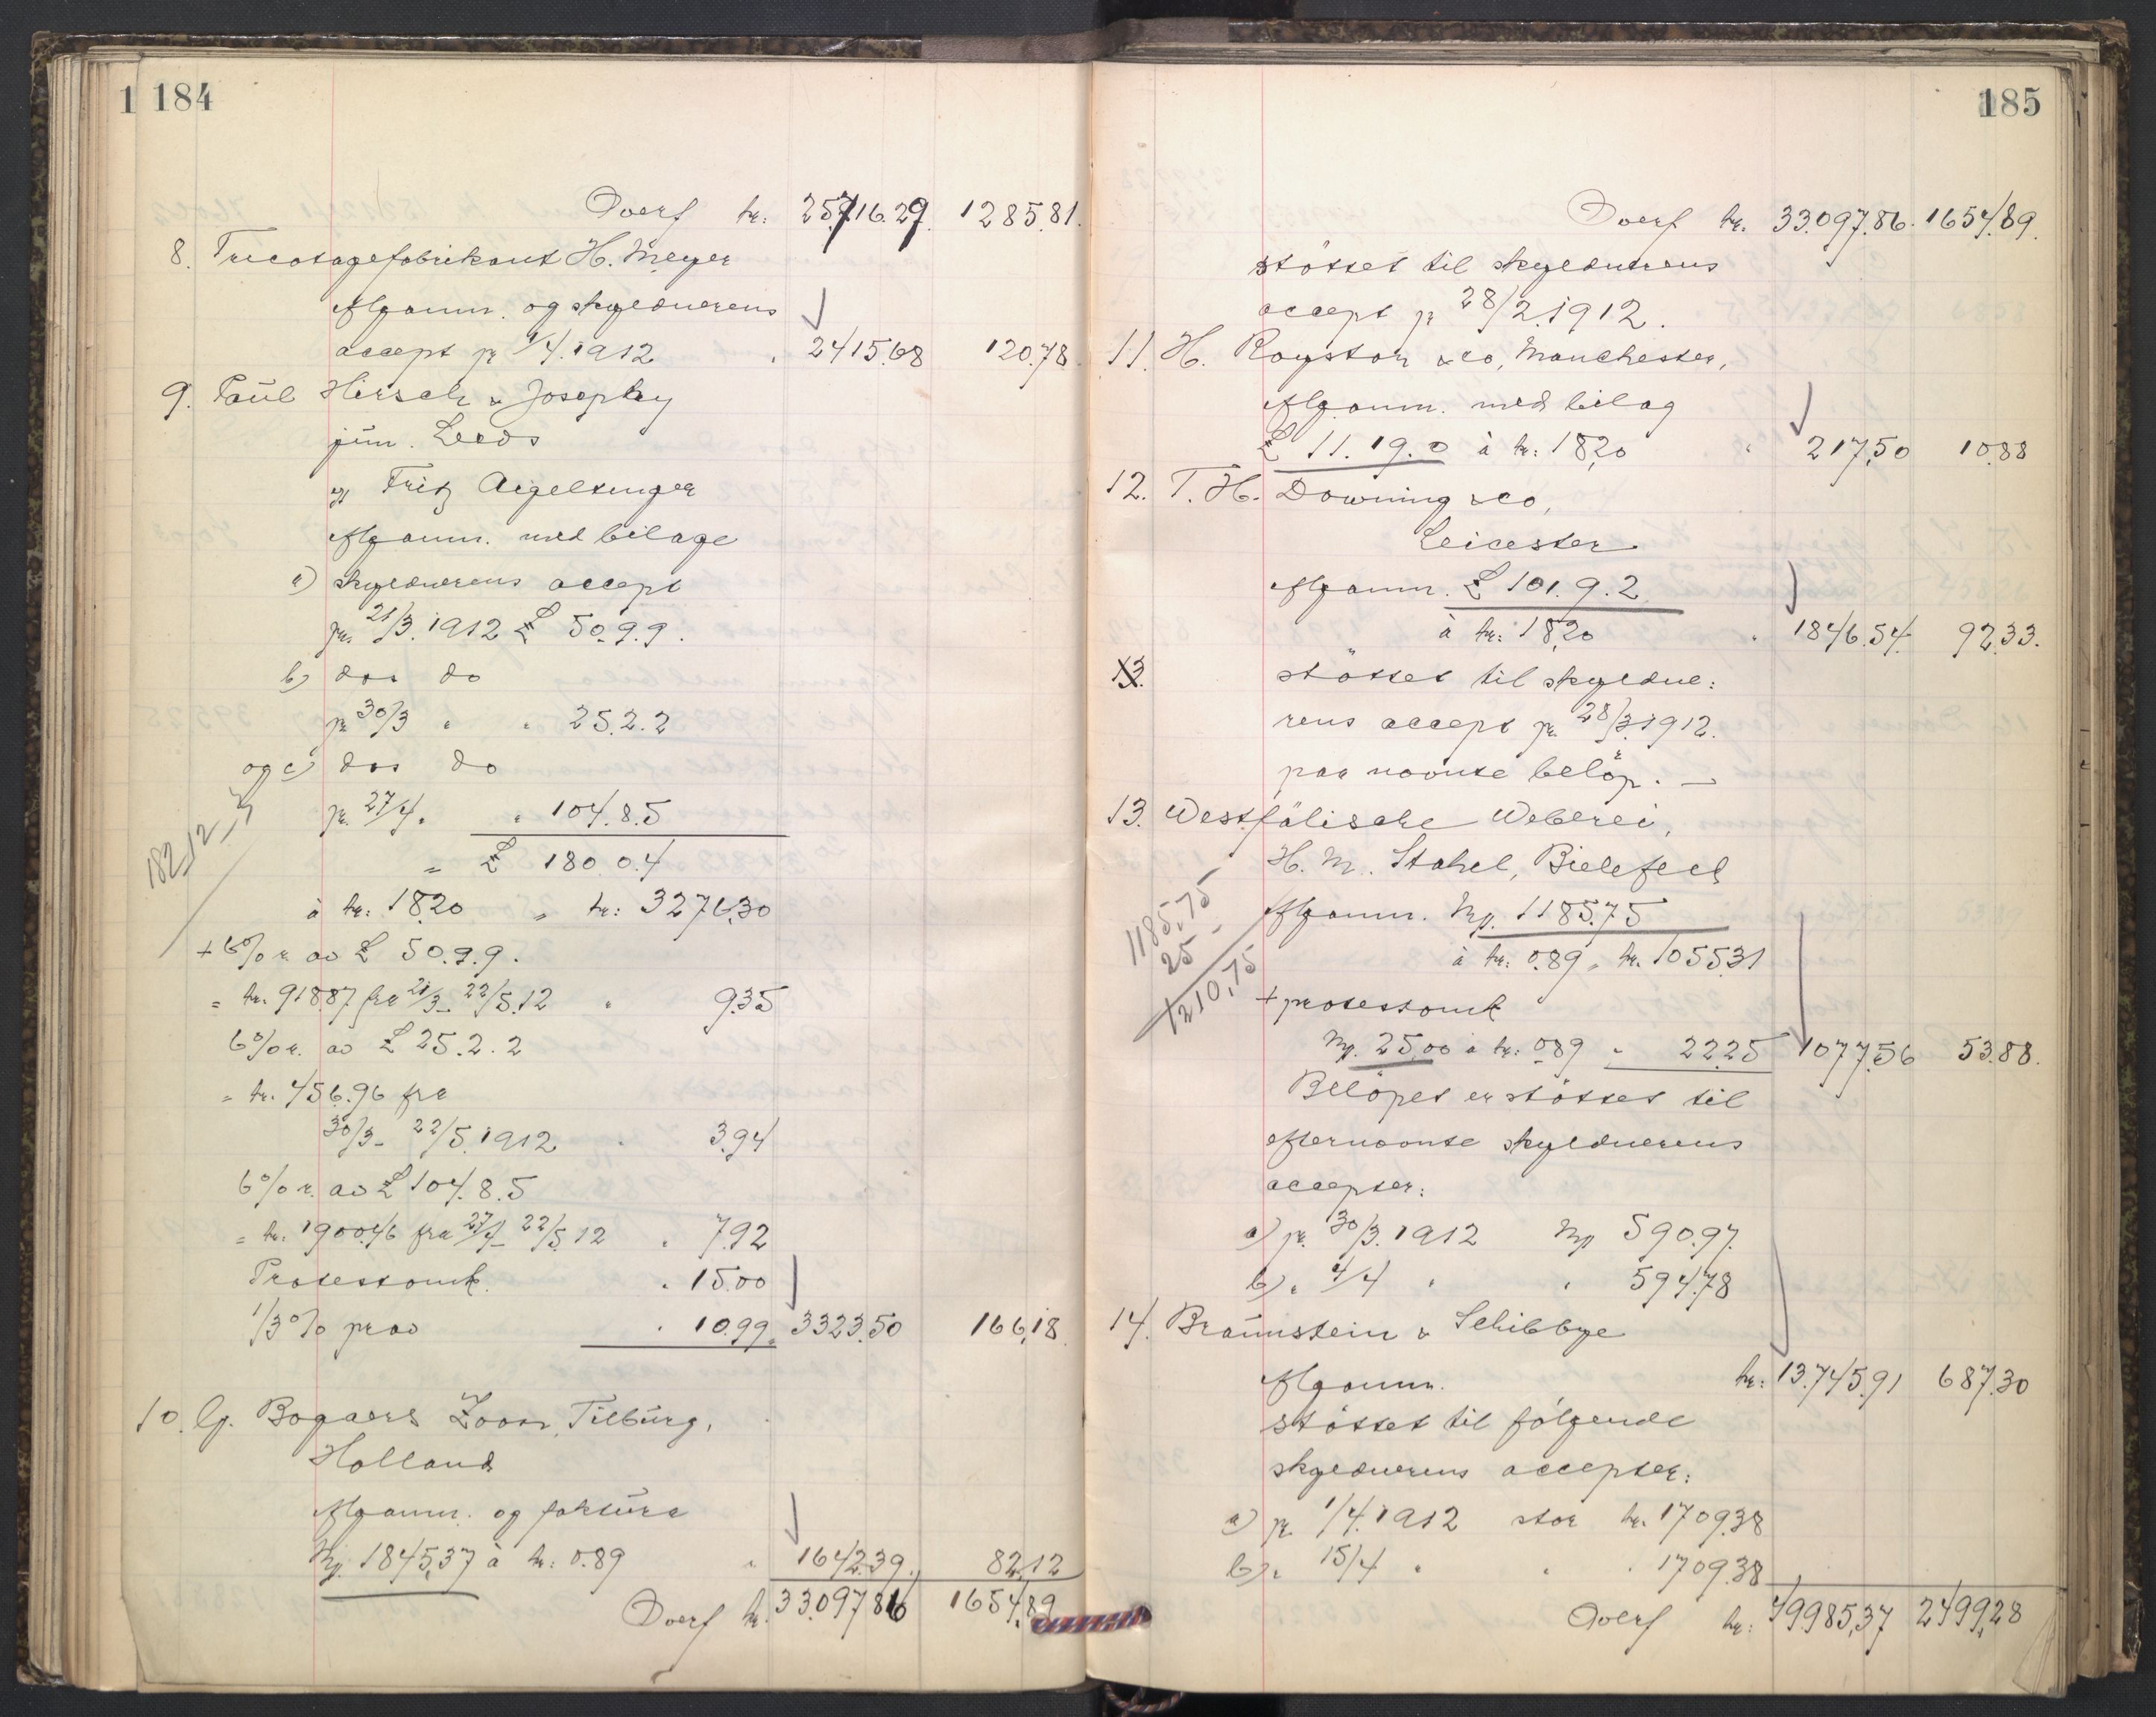 1 184
Overf kr: 25.716.29. 1285.81.
8. Tricotagefabrikant H. Meyer
Afganm. og skyldnerens
accept pr 4/4.1912 " 2415.68 120.78
9. Paul Hirsch & Josephy
jun. Leeds
v/ Fritz Aigeltinger
Afganm. med bilage
a) skyldnerens accept
pr. 21/3.1912 £ 50.9.9.
b) dos do
pr 30/3 " " 25.2.2
og c) dos do
pr. 27/4. " 104.8.5
182.12_3
= £ 180.0.4
à kr: 18,20 = kr: 3276,30
+ 6% r. av £ 50.9.9.
= kr. 918.87 fra 21/3_ 22/5.12 " 9.35
6% r. av £ 25.2.2
= kr. 456.96 fra
30/3- 22/5.1912 " 3.94
6% r. av £ 104.8.5
= kr: 1900.46 fra 27/4_ 22/5.12 " 7.92
Protestomk. " 15.00
1/3% prov " 10.99. 3323.50 166,18
10. G. Bogaers Zoon, Tilburg,
Holland
Afganm. og faktura
Mk. 1845,37 à kr: 0.89 " 1642.39. 82.12
Overf kr. 33.097.86 1654.89
185
Overf kr. 33.097.86. 1654.89.
støttet til skyldnerens
accept pr 28/2.1912.
11. H. Royston & co, Manchester,
Afganm. med bilag
£ 11.19.0 à kr: 18,20 " 217,50 10.88
12. T. H. Downing & co,
Leicester
Afganm. £ 101.9.2
à kr: 18,20 " 1846.54. 92.33.
13. støttet til skyldne:
rens accept pr. 28/3.1912.
paa nævnte beløp. —
13. Westfälische Weberei,
H. M. Stahel, Bielefeld
1185,75
25 -
1210,75
Afganm. Mk. 1185.75
à kr: 0.89 = kr. 1055.31
+ protestomk
Mk. 25,00 à kr: 0.89 " 22.25 1077,56 53.88.
Beløpet er støttet til
efternævnte skyldnerens
accepter:
a) pr. 30/3.1912 Mk 590.97.
b) " 4/4 " " 594.78
14. Braunstein & Schibbye
Afganm. kr: 13.745.91 687.30
støttet til følgende
skyldnerens accepter:
a) pr 1/4.1912 stor kr. 1709.38
b) " 15/4 " " " 1709.38
Overf kr: 49.985,37 2499,28